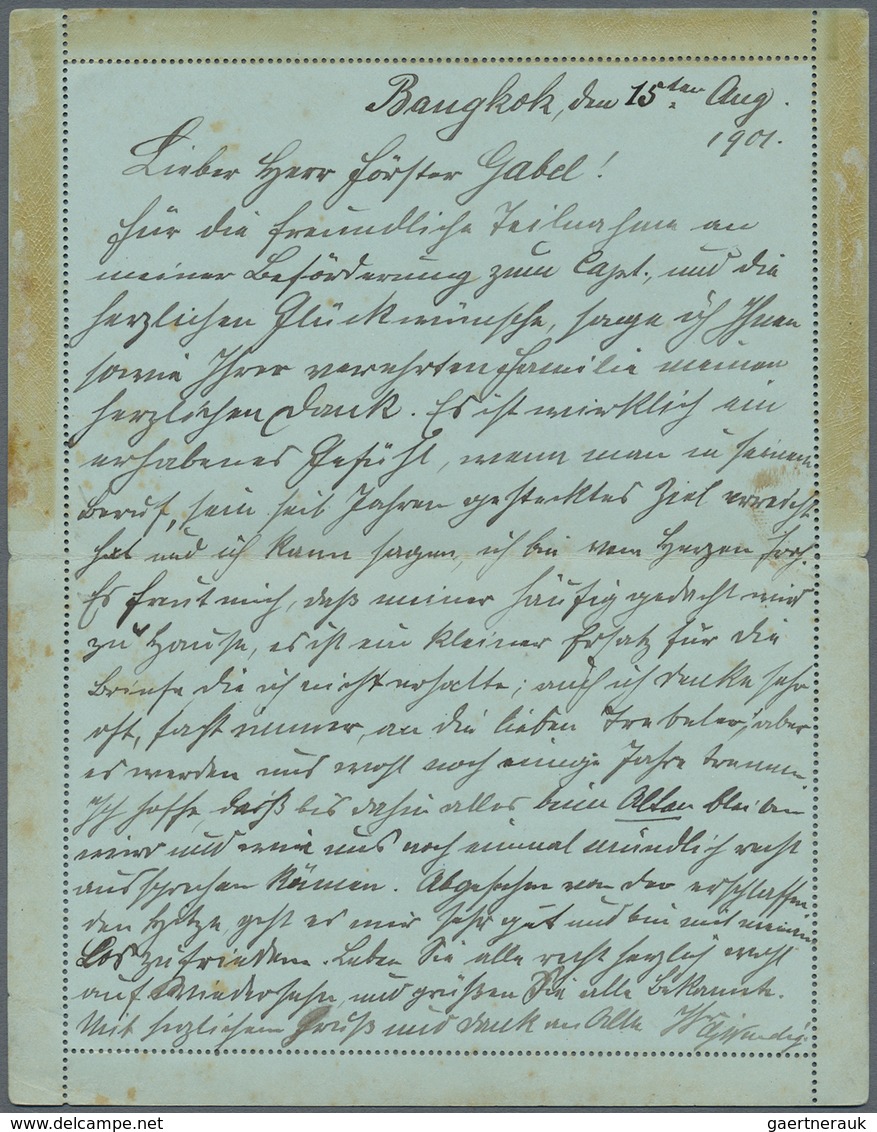 Bangkok, den 15ten Aug.
1901.
Lieber Herr Förster Gabel!
Für die freundliche Teilnahme an
meiner Beförderung zum Capt., und die
herzlichen Glückwünsche, sage ich Ihnen
sowie Ihrer verehrten Familie meinen
herzlichen Dank. Es ist wirklich ein
erhabenes Gefühl, wenn man in seinem
Beruf, sein seit Jahren gestecktes Ziel erreicht
hat und ich kann sagen, ich bin vom Herzen froh.
Es freut mich, daß meiner häufig gedacht wird
zu Hause, es ist ein kleiner Ersatz für die
Briefe, die ich nicht erhalte; auch ich denke sehr
oft, fast immer, an die lieben Trebeler; aber
es werden uns wohl noch einige Jahre trennen.
Ich hoffe, daß bis dahin alles beim Alten bleiben
wird und wir uns noch einmal mündlich recht
aussprechen können. Abgesehen von der erschlaffen-
den Hitze, geht es mir sehr gut und bin mit meinem
Los zufrieden. Leben Sie alle recht herzlich wohl
auf Wiedersehn, und grüßen Sie alle Bekannte.
Mit herzlichem Gruß und Dank an Alle Ihr
gaertnerauk